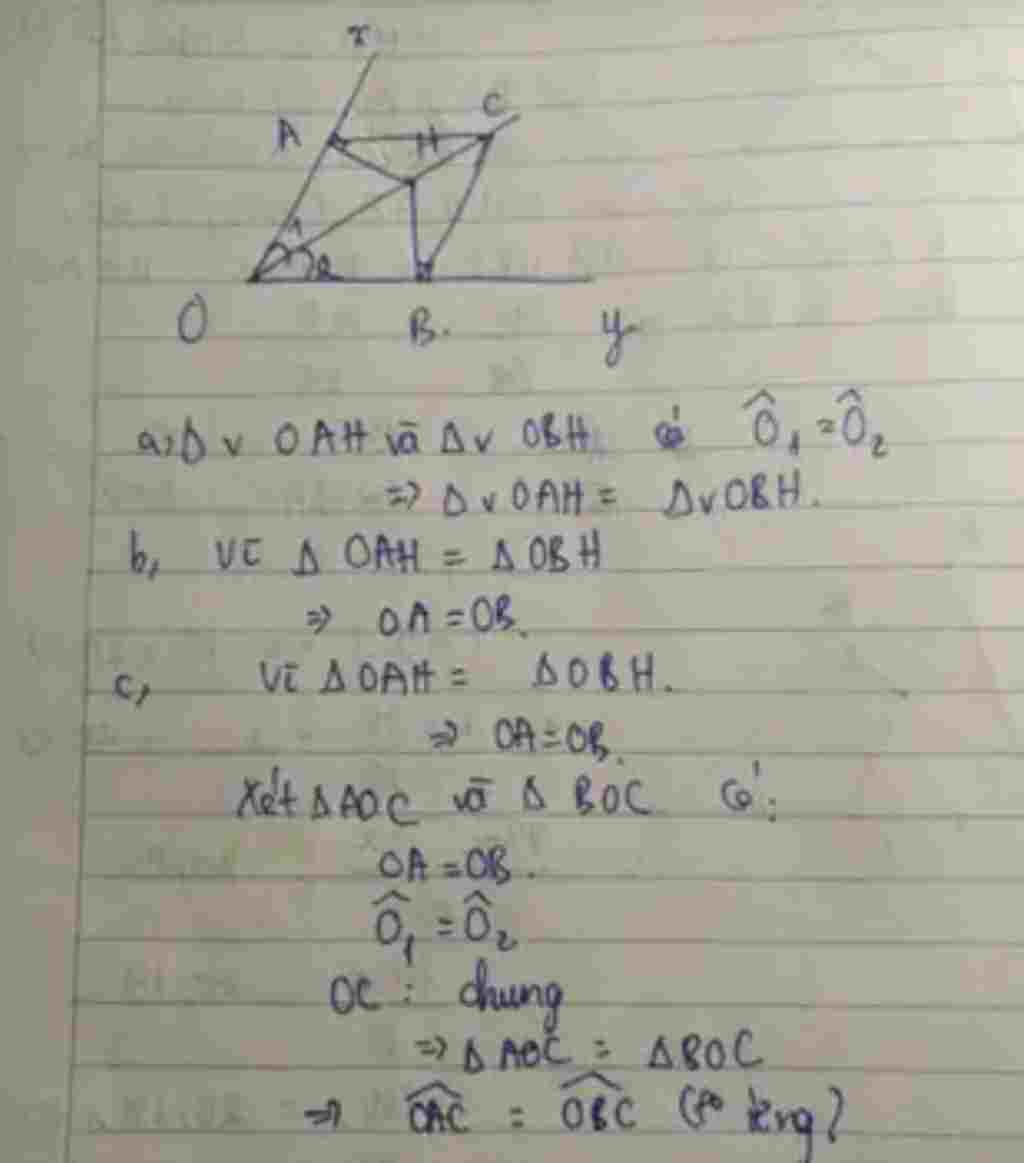 x
A H C
1
2
O B. y
a, Δv OAH và Δv OBH có Ô₁ = Ô₂
=> Δv OAH = Δv OBH.
b, Vì Δ OAH = Δ OBH
=> OA = OB.
c, Vì Δ OAH = Δ OBH.
=> OA = OB.
Xét Δ AOC và Δ BOC có:
OA = OB.
Ô₁ = Ô₂
OC : chung
=> Δ AOC = Δ BOC
=> \widehat{OAC} = \widehat{OBC}